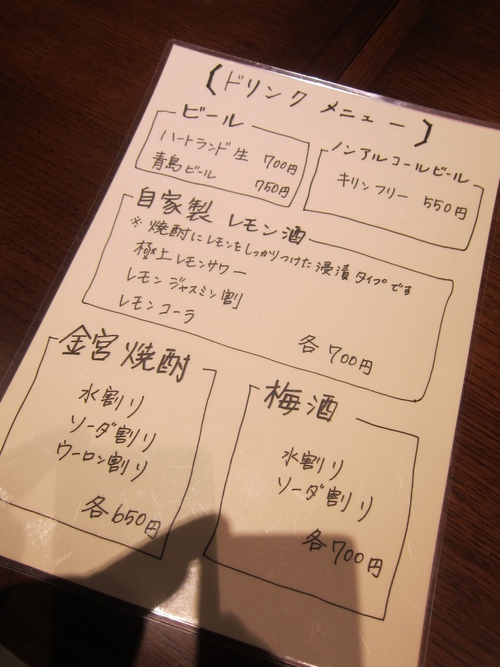 【ドリンク メニュー】
ビール
ハートランド 生 700円
青島ビール 750円
ノンアルコールビール
キリンフリー 550円
自家製 レモン酒
※焼酎にレモンをしっかりつけた浸漬タイプです
極上レモンサワー
レモンジャスミン割
レモンコーラ
各700円
金宮焼酎
水割り
ソーダ割り
ウーロン割り
各650円
梅酒
水割り
ソーダ割り
各700円